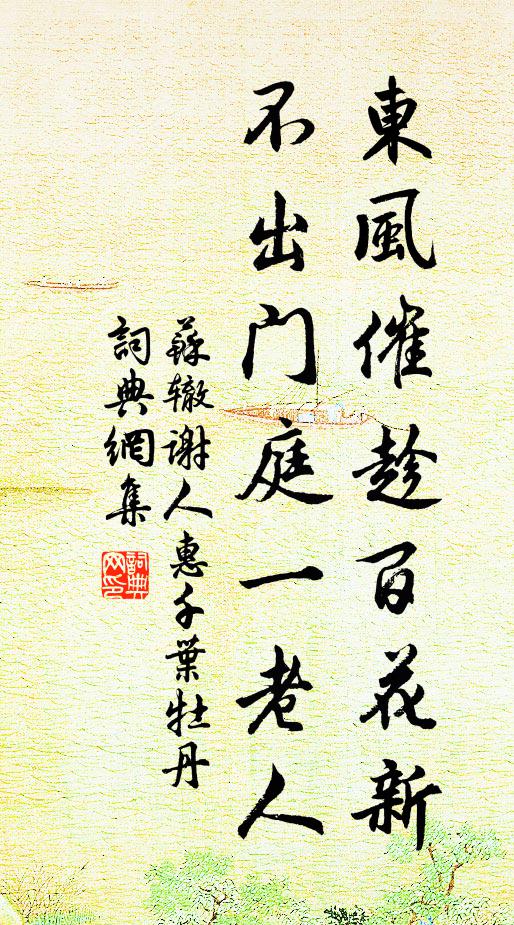 東風催趁百花新
不出门庭一老人
蘇轍谢人惠千葉牡丹
詞典網集
詞典网印